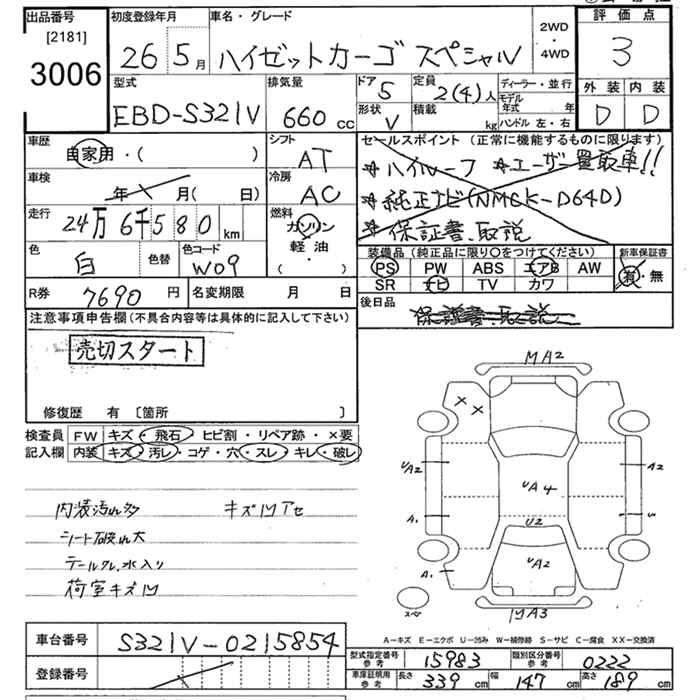 出品番号
[2181]
3006
初度登録年月
26 5月
車名・グレード
ハイゼットカーゴ スペシャル
2WD
・
4WD
評価点
3
外装 内装
D D
型式
EBD-S321V
排気量
660 cc
ドア 5
定員 2(4)人
形状 V
積載 kg
ディーラー・並行
モデル年式 年
ハンドル 左・右
車歴
自家用・( )
シフト
AT
セールスポイント (正常に機能するものに限ります)
*ハイルーフ *ユーザー買取車!!
*純正ナビ(NMCK-D64D)
*保証書、取説
車検
年 月(日)
冷房
AC
走行
24万6千580km
燃料
ガソリン
軽油
( )
色
白
色替
色コード
W09
装備品 (純正品に限り○をつけてください)
PS PW ABS エアB AW
SR ナビ TV カワ
新車保証書
有・無
R券 7690円
名変期限 月 日
後日品
保証書、取説
注意事項申告欄(不具合内容等は具体的に記入して下さい)
売切スタート
修復歴 有 〔箇所 〕
検査員
記入欄
FW キズ・飛石・ヒビ割・リペア跡・×要
内装 キズ・汚レ・コゲ・穴・スレ・キレ・破レ
内装汚れ多 キズ凹アセ
シート破れ大
テールクレ、水入り
荷室キズ凹
MA2
××
UA2
A2
UA4
A1
U2
UA2
A1
凹A3
スペア
A-キズ E-エクボ U-凹み W-補修跡 S-サビ C-腐食 XX-交換済
車台番号 S321V-0215854
登録番号
型式指定番号 参考 15983
類別区分番号 参考 0222
車庫証明用 参考 長さ 339cm 幅 147cm 高さ 189cm